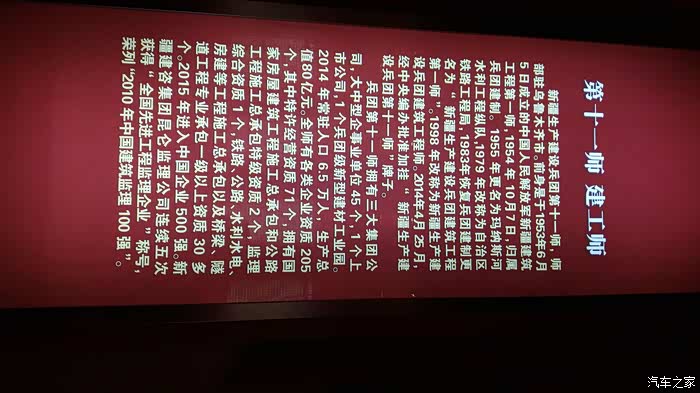 第十一师 建工师
新疆生产建设兵团第十一师,师
部驻乌鲁木齐市。前身是于1953年6月
5日成立的中国人民解放军新疆建筑
工程第一师,1954年10月7日,归属
兵团建制。1955年更名为玛纳斯河
水利工程纵队,1979年改称为自治区
铁路工程局,1983年恢复兵团建制更
名为“新疆生产建设兵团建筑工程
第一师”。1998年改称为新疆生产建
设兵团建筑工程师。2014年4月25月,
经中央编办批准加挂“新疆生产建
设兵团第十一师”牌子。
兵团第十一师拥有三大集团公
司,大中型企事业单位45个,1个上
市公司,1个兵团级新型建材工业园。
2014年常驻人口6.5万人,生产总
值80亿元。全师有各类企业资质205
个,其中特许经营资质71个,拥有国
家房屋建筑工程施工总承包和公路
工程施工总承包特级资质2个,监理
综合资质1个,铁路、公路、水利水电、
房建等工程施工总承包以及桥梁、隧
道工程专业承包一级以上资质30多
个。2015年进入中国企业500强。新
疆建咨集团昆仑监理公司连续五次
获得“全国先进工程监理企业”称号,
荣列“2010年中国建筑监理100强”。
汽车之家